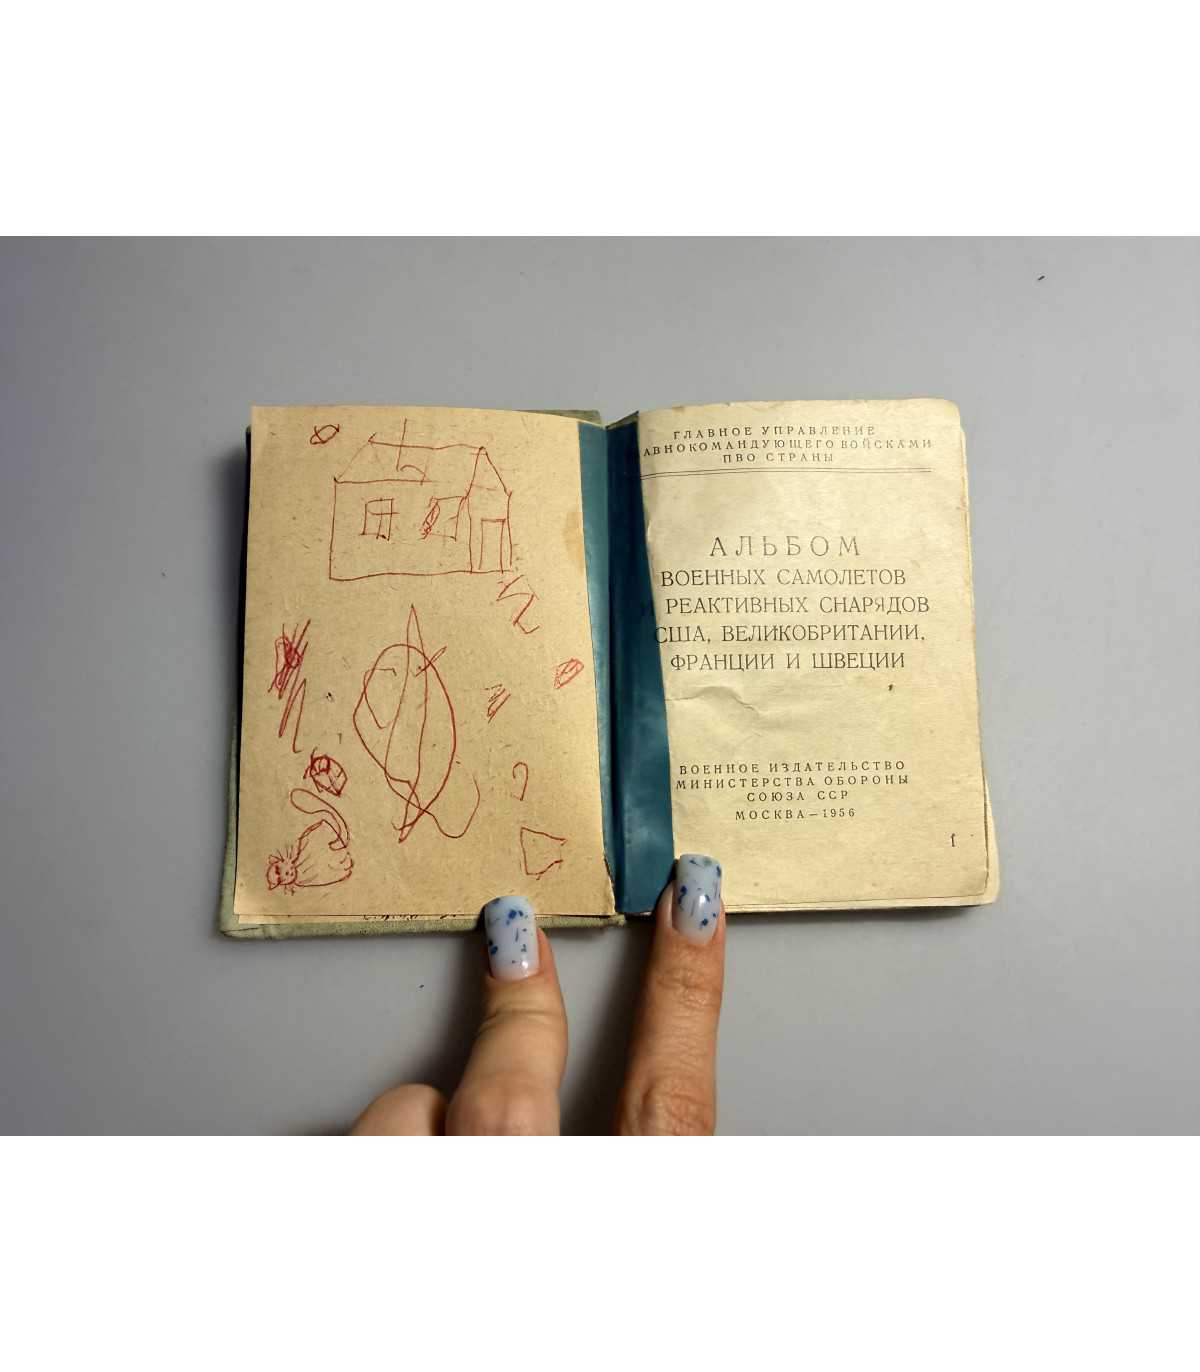 ГЛАВНОЕ УПРАВЛЕНИЕ
АВНОКОМАНДУЮЩЕГО ВОЙСКАМИ
ПВО СТРАНЫ
АЛЬБОМ
ВОЕННЫХ САМОЛЕТОВ
И РЕАКТИВНЫХ СНАРЯДОВ
США, ВЕЛИКОБРИТАНИИ,
ФРАНЦИИ И ШВЕЦИИ
ВОЕННОЕ ИЗДАТЕЛЬСТВО
МИНИСТЕРСТВА ОБОРОНЫ
СОЮЗА ССР
МОСКВА — 1956
1